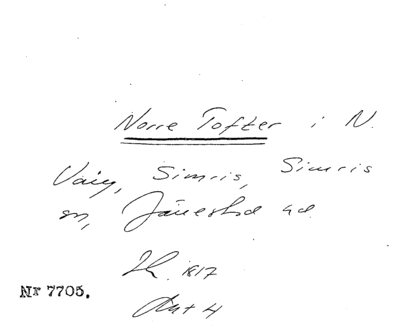 Norre Tofter i N.
Vång, Simris, Simris
sn, Järrestad hd.
1817
Akt 4
Nr 7705.